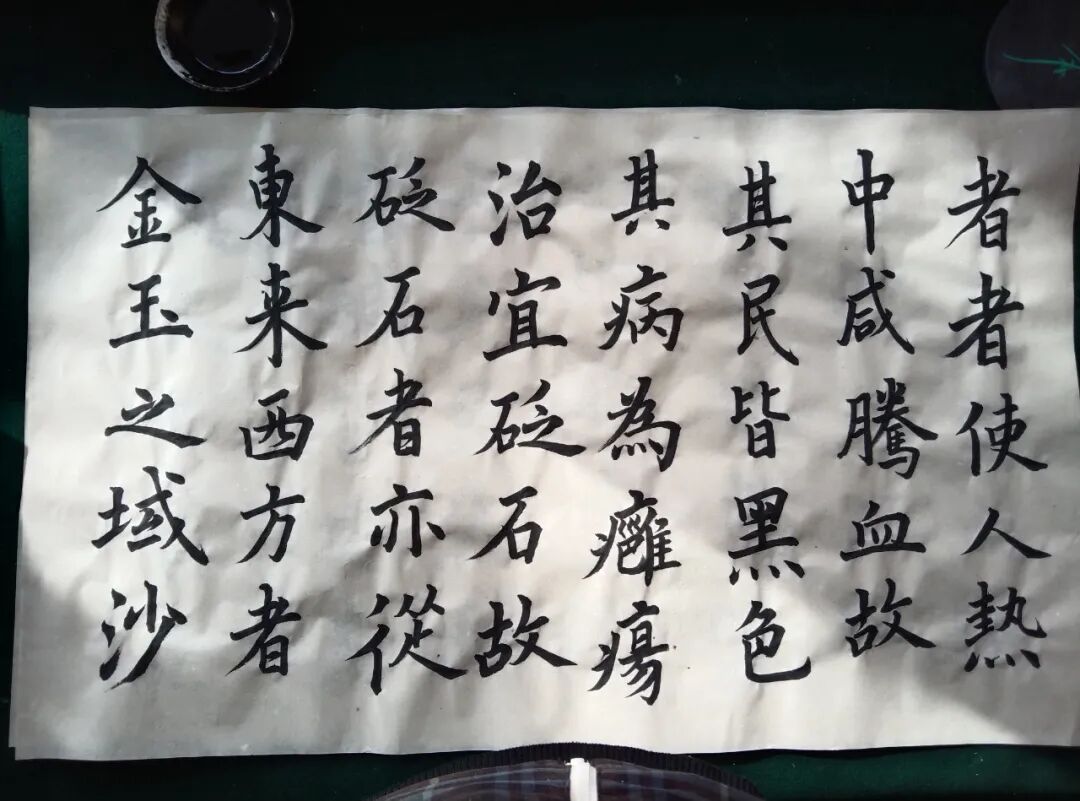 者者使人熱
中咸騰血故
其民皆黑色
其病為癰瘍
治宜砭石故
砭石者亦從
東来西方者
金玉之域沙